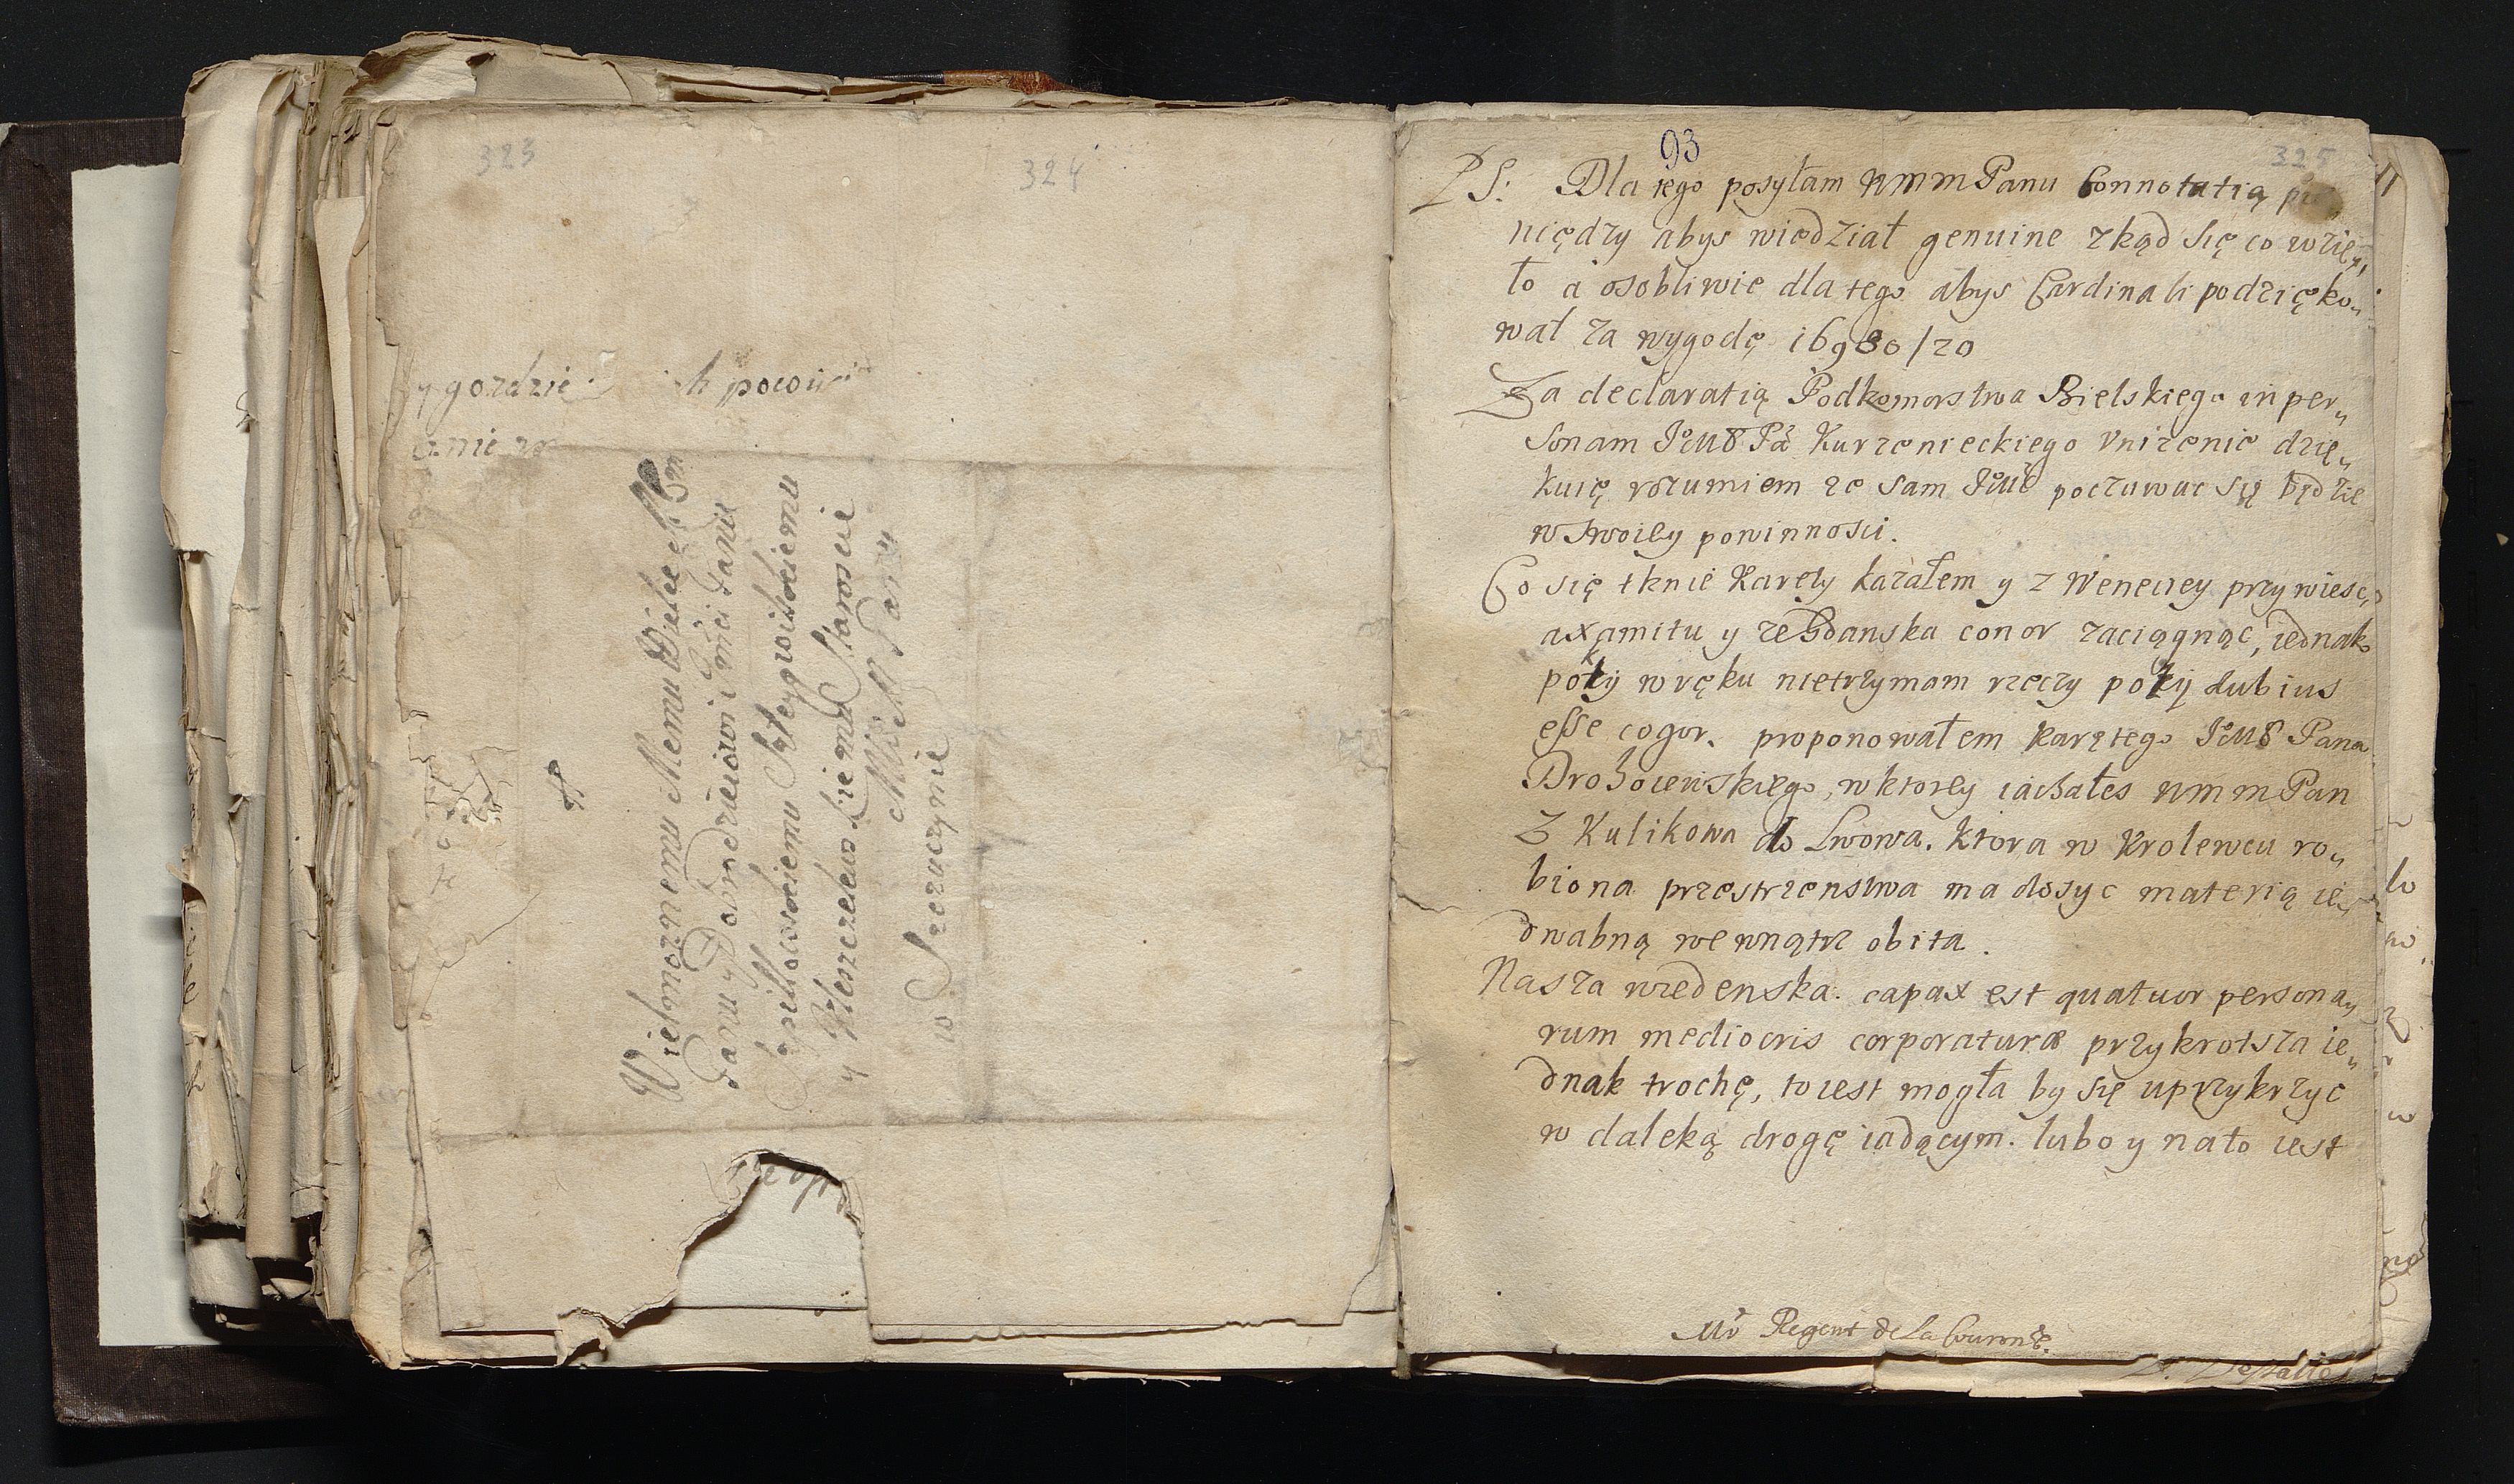 323
324
y gozdzie
h pocou
cznie
Wielmoznemu Memu Wielce Mm
Panu y Dobrodzieiowi Jmci Panu
Antegnowiskiemu
y Kleszczelewskiemu Staroscie
Mm Panu
w Szczuczynie
93
325
PS: Dla tego posyłam WmmPanu Connotatią
niędzy abys wiedział genuine zkąd się co wzię„
ło a osobliwie dla tego abys Cardinali podzięko„
wał za wygodę 16980/20
Za declaratią Podkomorstwa Bielskiego in per„
sonam Jº Mº Pª Kurzenieckiego Vnizenie dzię„
kuię rozumiem ze sam JºMć poczuwac się będzie
w swoiey powinnosci.
Co się tknie Karety kazałem y z Weneciey przywiesc,
axamitu y ze Gdanska conor zaciągnąc, iednak
poky w ręku nietrzymam rzeczy poky dubius
esse cogor. proponowałem karetego JºMº Pana
Drohoiewskiego, w ktorey iachałes Wmm Pan
Z Kulikowa do Lwowa. Ktora w Krolewcu ro„
biona przestrzenstwa ma dosyc materią ie„
dwabną wewnątrz obita.
Nasza wiedenska. capax est quatuor persona„
rum mediocris corporaturæ przykrotsza ie„
dnak trochę, to iest mogła by się uprzykrzyc
w daleką drogę iadącym. lubo y nato iest
Mr Regent de La Couronne.